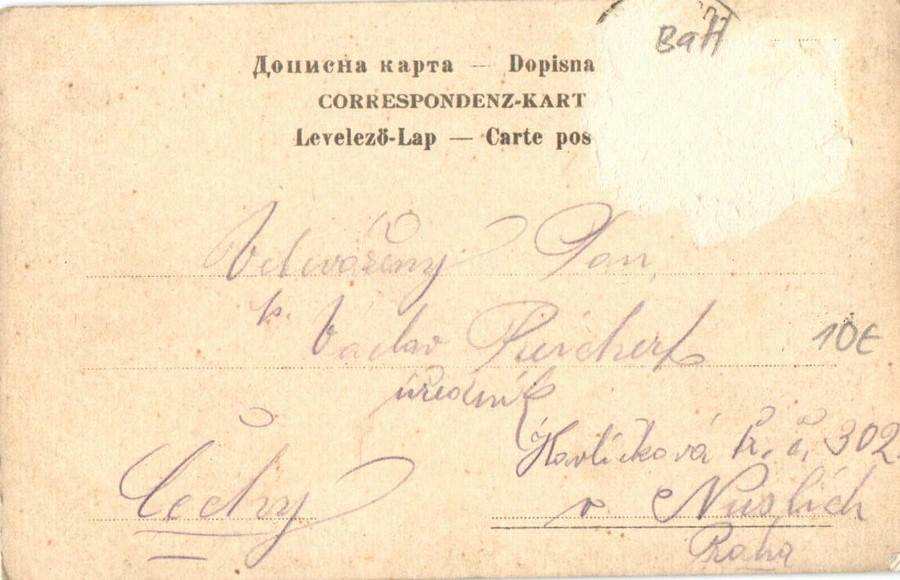 BaH
Дописна карта — Dopisna
CORRESPONDENZ-KART
Levelező-Lap — Carte pos
Velevážený Pan,
p. Václav Reichert
10€
úředník
Havlíčková tř. č. 302
Čechy v Nuslích
Praha